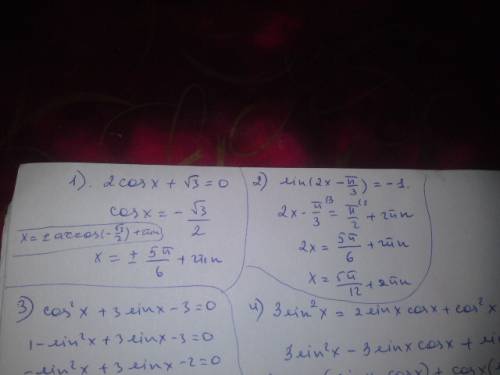 1). 2cosx + √3 = 0
cosx = -√3/2
x = ± arccos(-√3/2) + πn
x = ± 5π/6 + 2πn
2) sin(2x - π/3) = -1.
2x - π/3 = π/2 + 2πn
2x = 5π/6 + 2πn
x = 5π/12 + 2πn
3) cos²x + 3sinx - 3 = 0
1 - sin²x + 3sinx - 3 = 0
-sin²x + 3sinx - 2 = 0
4) 3sin²x = 2sinx cosx + cos²x
3sin²x - 3sinx cosx + sin
cosx) + cosx(